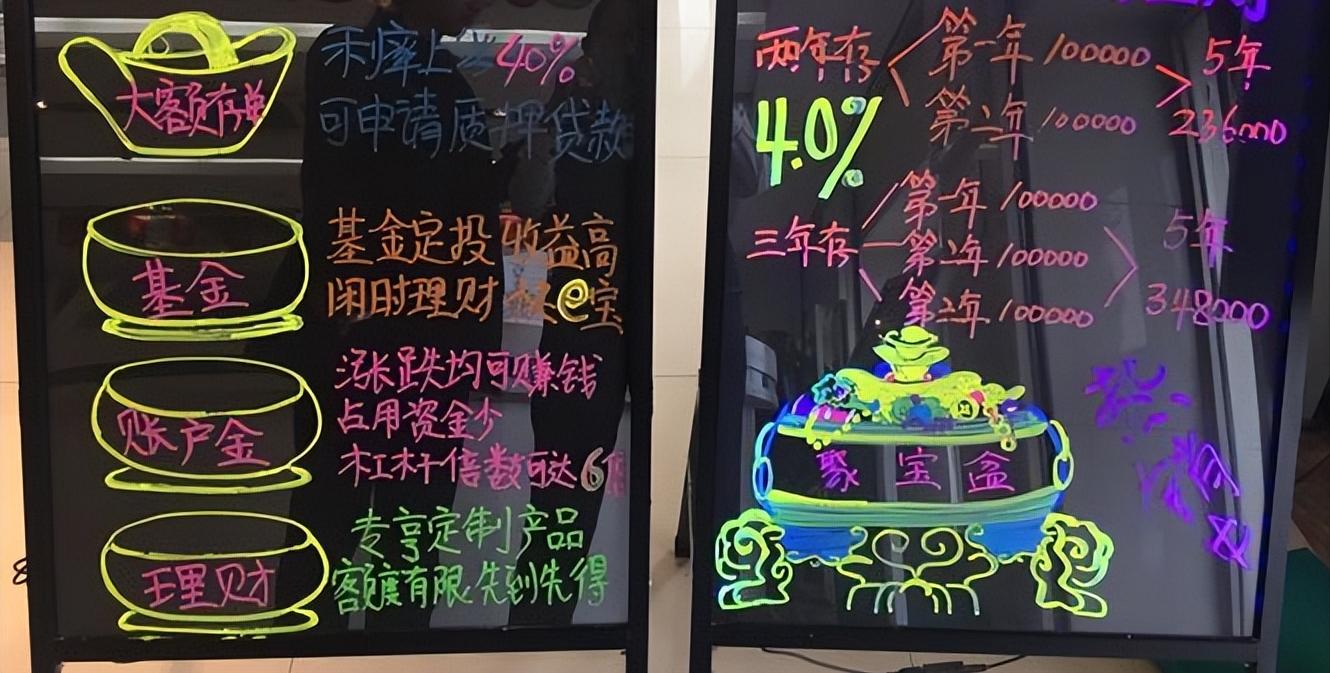 大额存单
利率上浮40%
可申请质押贷款
基金
基金定投 收益高
闲时理财 e宝
账户金
涨跌均可赚钱
占用资金少
杠杆倍数可达6倍
理财
专享定制产品
额度有限 先到先得
两年存
4.0%
第一年 100000
第二年 100000
5年
236000
三年存
第一年 100000
第二年 100000
第三年 100000
5年
348000
聚宝盆